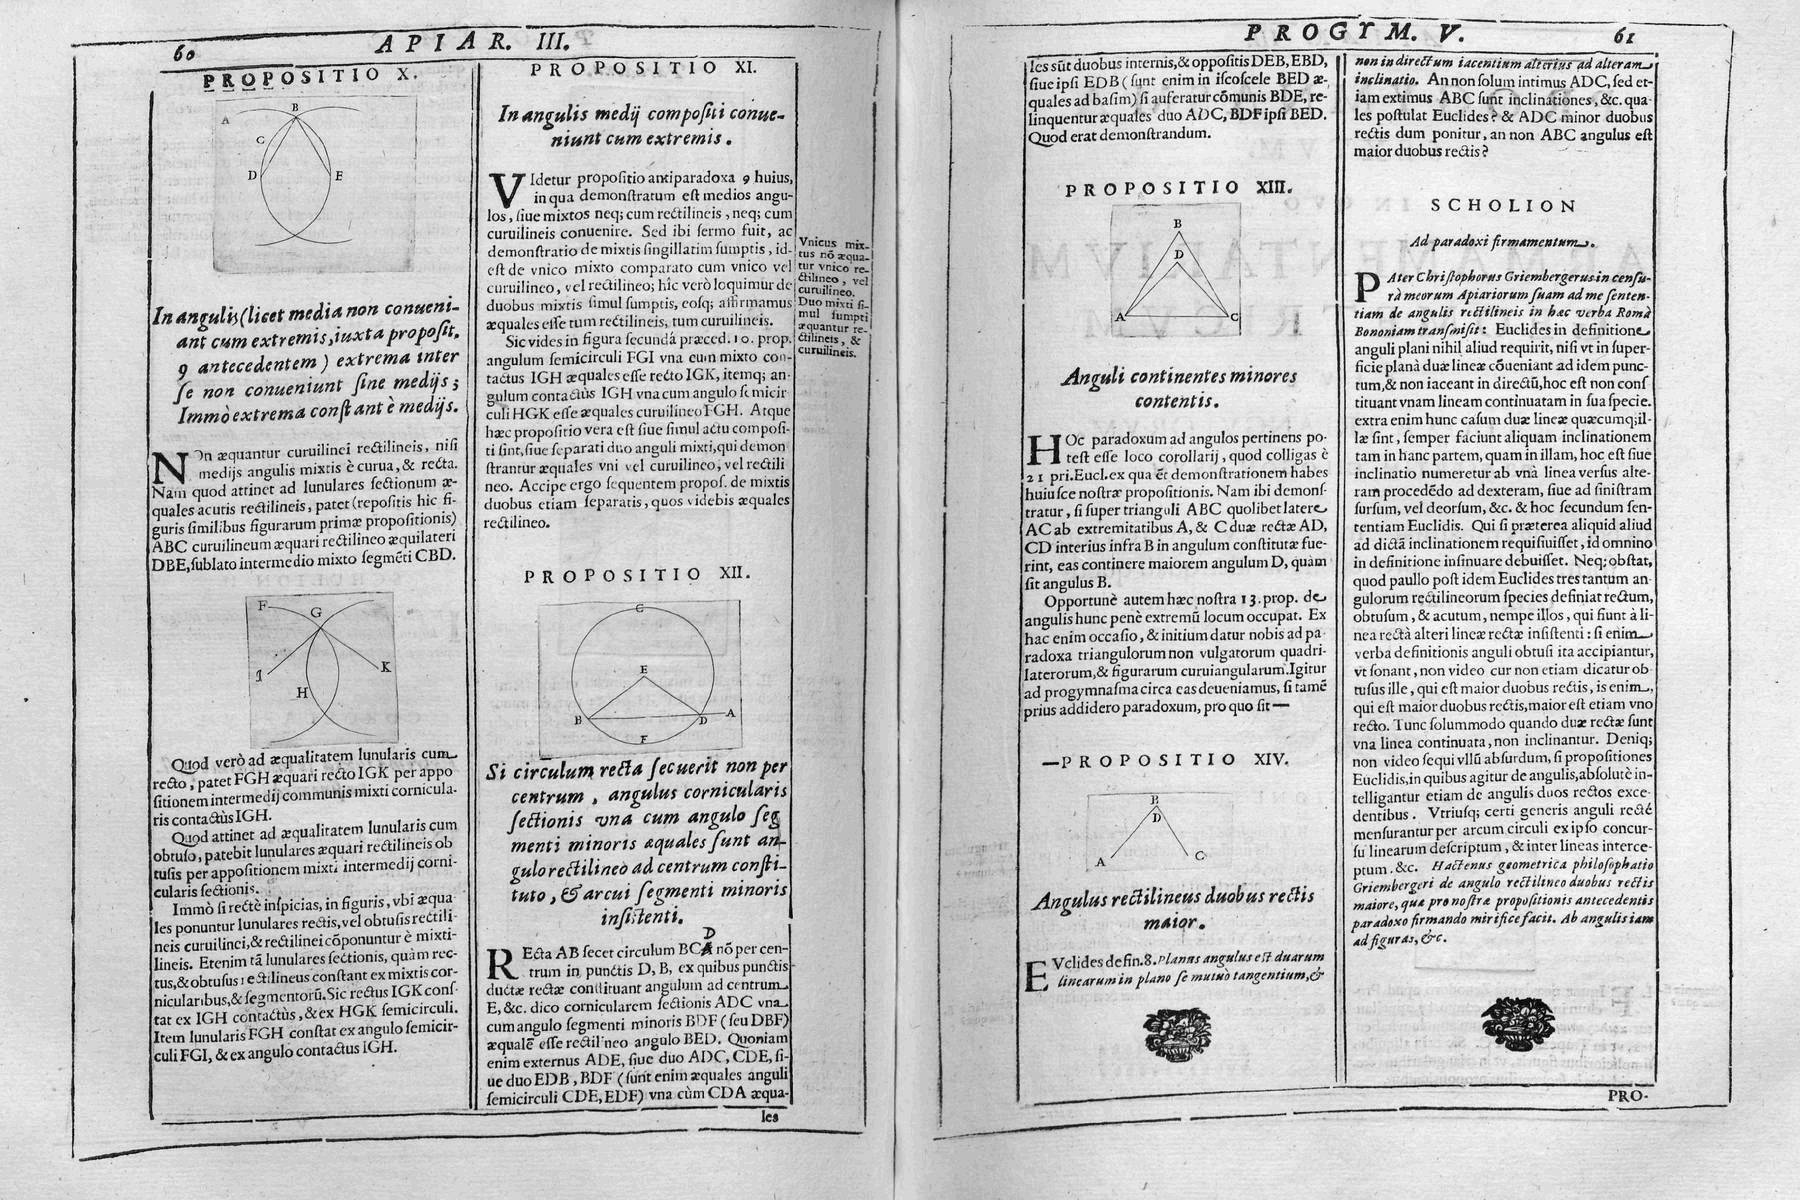 60
APIAR. III.
PROPOSITIO X.
A
B
C
D
E
In angulis (licet media non conueni-
ant cum extremis, iuxta proposit.
9 antecedentem) extrema inter
se non conueniunt sine medijs;
Immò extrema constant è medijs.
NOn æquantur curuilinei rectilineis, nisi
medijs angulis mixtis è curua, & recta.
Nam quod attinet ad lunulares sectionum æ-
quales acutis rectilineis, patet (repositis hic fi-
guris similibus figurarum primæ propositionis)
ABC curuilineum æquari rectilineo æquilateri
DBE, sublato intermedio mixto segmẽti CBD.
F
G
I
K
H
Quod verò ad æqualitatem lunularis cum
recto, patet FGH æquari recto IGK per appo
sitionem intermedij communis mixti cornicula-
ris contactùs IGH.
Quod attinet ad æqualitatem lunularis cum
obtuso, patebit lunulares æquari rectilineis ob
tusis per appositionem mixti intermedij corni-
cularis sectionis.
Immò si rectè inspicias, in figuris, vbi æqua-
les ponuntur lunulares rectis, vel obtusis rectili-
neis curuilinei, & rectilinei cõponuntur è mixti-
lineis. Etenim tã lunulares sectionis, quàm rec-
tus, & obtusus rectilineus constant ex mixtis cor-
nicularibus, & segmentorũ. Sic rectus IGK cons-
tat ex IGH contactùs, & ex HGK semicirculi.
Item lunularis FGH constat ex angulo semicir-
culi FGI, & ex angulo contactus IGH.
PROPOSITIO XI.
In angulis medij compositi conue-
niunt cum extremis.
VIdetur propositio antiparadoxa 9 huius,
in qua demonstratum est medios angu-
los, siue mixtos neq; cum rectilineis, neq; cum
curuilineis conuenire. Sed ibi sermo fuit, ac
demonstratio de mixtis singillatim sumptis, id-
est de vnico mixto comparato cum vnico vel
curuilineo, vel rectilineo; hîc verò loquimur de
duobus mixtis simul sumptis, eosq; affirmamus
æquales esse tum rectilineis, tum curuilineis.
Sic vides in figura secundâ præced. 10. prop.
angulum semicirculi FGI vna cum mixto con-
tactus IGH æquales esse recto IGK, itemq; an-
gulum contactùs IGH vna cum angulo semicir
culi HGK esse æquales curuilineo FGH. Atque
hæc propositio vera est siue simul actu composi-
ti sint, siue separati duo anguli mixti, qui demon
strantur æquales vni vel curuilineo, vel rectili
neo. Accipe ergo sequentem propos. de mixtis
duobus etiam separatis, quos videbis æquales
rectilineo.
Vnicus mix-
tus nõ æqua-
tur vnico re-
ctilineo, vel
curuilineo.
Duo mixti si-
mul sumpti
æquantur re-
ctilineis, &
curuilineis.
PROPOSITIO XII.
C
E
B
D
A
F
Si circulum recta secuerit non per
centrum, angulus cornicularis
sectionis vna cum angulo seg
menti minoris æquales sunt an-
gulo rectilineo ad centrum consti-
tuto, & arcui segmenti minoris
insistenti.
D
REcta AB secet circulum BCA nõ per cen-
trum in punctis D, B, ex quibus punctis
ductæ rectæ constituant angulum ad centrum
E, &c. dico cornicularem sectionis ADC vna
cum angulo segmenti minoris BDF (seu DBF)
æqualẽ esse rectilineo angulo BED. Quoniam
enim externus ADE, siue duo ADC, CDE, si-
ue duo EDB, BDF (sunt enim æquales anguli
semicirculi CDE, EDF) vna cùm CDA æqua-
les
PROGYM. V.
61
les sũt duobus internis, & oppositis DEB, EBD,
siue ipsi EDB (sunt enim in isoscele BED æ-
quales ad basim) si auferatur cõmunis BDE, re-
linquentur æquales duo ADC, BDF ipsi BED.
Quod erat demonstrandum.
PROPOSITIO XIII.
B
D
A
C
Anguli continentes minores
contentis.
HOc paradoxum ad angulos pertinens po-
test esse loco corollarij, quod colligas è
21 pri. Eucl. ex qua ẽt demonstrationem habes
huiusce nostræ propositionis. Nam ibi demons-
tratur, si super trianguli ABC quolibet latere
AC ab extremitatibus A, & C duæ rectæ AD,
CD interius infra B in angulum constitutæ fue-
rint, eas continere maiorem angulum D, quàm
sit angulus B.
Opportunè autem hæc nostra 13. prop. de
angulis hunc penè extremũ locum occupat. Ex
hac enim occasio, & initium datur nobis ad pa-
radoxa triangulorum non vulgatorum quadri-
laterorum, & figurarum curuiangularum. Igitur
ad progymnasma circa eas deueniamus, si tamẽ
prius addidero paradoxum, pro quo sit —
—PROPOSITIO XIV.
B
D
A
C
Angulus rectilineus duobus rectis
maior.
EVclides defin. 8. Planus angulus est duarum
linearum in plano se mutuò tangentium, &
non in directum iacentium alterius ad alteram
inclinatio. An non solum intimus ADC, sed et-
iam extimus ABC sunt inclinationes, &c. qua-
les postulat Euclides? & ADC minor duobus
rectis dum ponitur, an non ABC angulus est
maior duobus rectis?
SCHOLION
Ad paradoxi firmamentum.
PAter Christophorus Griembergerus in censu-
râ meorum Apiariorum suam ad me senten-
tiam de angulis rectilineis in hæc verba Româ
Bononiam transmisit: Euclides in definitione
anguli plani nihil aliud requirit, nisi vt in super-
ficie planâ duæ lineæ cõueniant ad idem punc-
tum, & non iaceant in directũ, hoc est non cons
tituant vnam lineam continuatam in sua specie.
extra enim hunc casum duæ lineæ quæcumq; il-
læ sint, semper faciunt aliquam inclinationem
tam in hanc partem, quam in illam, hoc est siue
inclinatio numeretur ab vnâ linea versus alte-
ram procedẽdo ad dexteram, siue ad sinistram
sursum, vel deorsum, &c. & hoc secundum sen-
tentiam Euclidis. Qui si præterea aliquid aliud
ad dictã inclinationem requisiuisset, id omnino
in definitione insinuare debuisset. Neq; obstat,
quod paullo post idem Euclides tres tantum an-
gulorum rectilineorum species definiat rectum,
obtusum, & acutum, nempe illos, qui fiunt à li-
nea rectâ alteri lineæ rectæ insistenti: si enim
verba definitionis anguli obtusi ita accipiantur,
vt sonant, non video cur non etiam dicatur ob-
tusus ille, qui est maior duobus rectis, is enim,
qui est maior duobus rectis, maior est etiam vno
recto. Tunc solummodo quando duæ rectæ sunt
vna linea continuata, non inclinantur. Deniq;
non video sequi vllũ absurdum, si propositiones
Euclidis, in quibus agitur de angulis, absolutè in-
telligantur etiam de angulis duos rectos exce-
dentibus. Vtriusq; certi generis anguli rectè
mensurantur per arcum circuli ex ipso concur-
su linearum descriptum, & inter lineas interce-
ptum. &c. Hactenus geometrica philosophatio
Griembergeri de angulo rectilineo duobus rectis
maiore, quæ pro nostræ propositionis antecedentis
paradoxo firmando mirificè facit. Ab angulis iam
ad figuras, &c.
PRO-